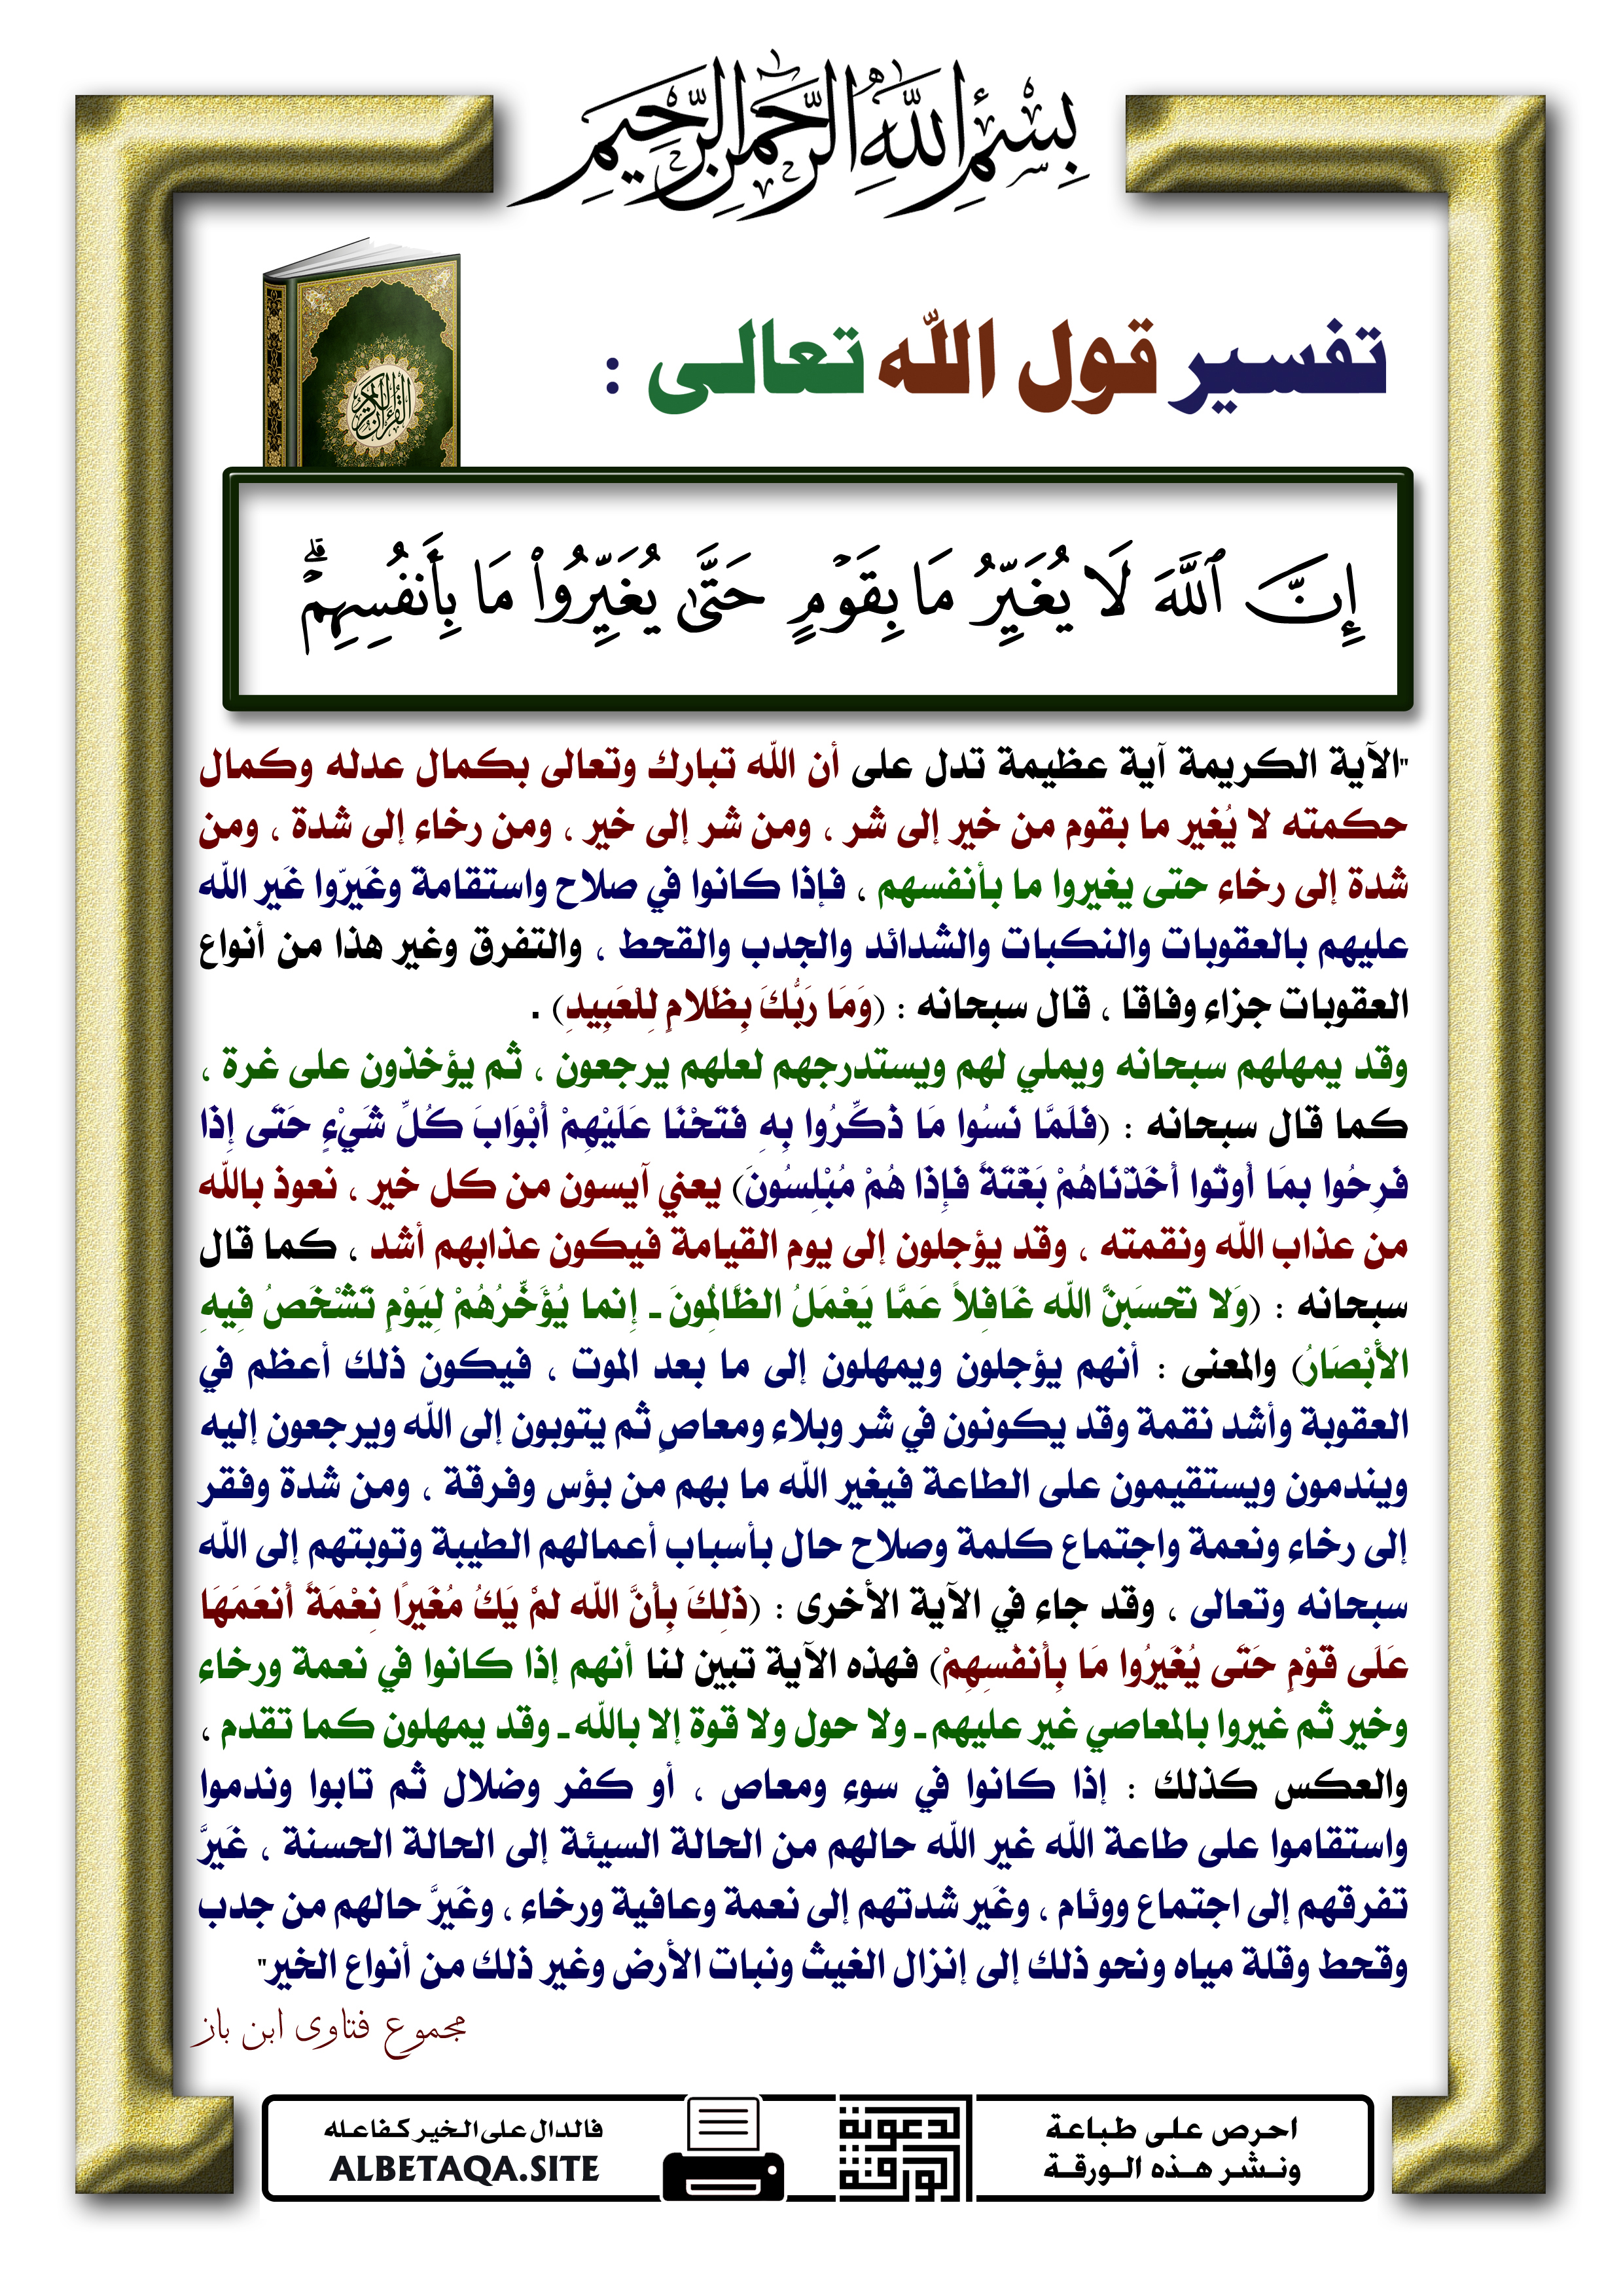 بِسْمِ اللَّهِ الرَّحْمَٰنِ الرَّحِيمِ
تفسير قول الله تعالى :
القرآن الكريم
إِنَّ ٱللَّهَ لَا يُغَيِّرُ مَا بِقَوْمٍ حَتَّىٰ يُغَيِّرُوا۟ مَا بِأَنفُسِهِمْ ۗ
"الآية الكريمة آية عظيمة تدل على أن الله تبارك وتعالى بكمال عدله وكمال
حكمته لا يُغير ما بقوم من خير إلى شر ، ومن شر إلى خير ، ومن رخاء إلى شدة ، ومن
شدة إلى رخاء حتى يغيروا ما بأنفسهم ، فإذا كانوا في صلاح واستقامة وغَيرّوا غَير الله
عليهم بالعقوبات والنكبات والشدائد والجدب والقحط ، والتفرق وغير هذا من أنواع
العقوبات جزاء وفاقا ، قال سبحانه : (وَمَا رَبُّكَ بِظَلامٍ لِلْعَبِيدِ) .
وقد يمهلهم سبحانه ويملي لهم ويستدرجهم لعلهم يرجعون ، ثم يؤخذون على غرة ،
كما قال سبحانه : (فَلَمَّا نَسُوا مَا ذُكِّرُوا بِهِ فَتَحْنَا عَلَيْهِمْ أَبْوَابَ كُلِّ شَيْءٍ حَتَى إِذَا
فَرِحُوا بِمَا أُوتُوا أَخَذْنَاهُمْ بَغْتَةً فَإِذَا هُمْ مُبْلِسُونَ) يعني آيسون من كل خير ، نعوذ بالله
من عذاب الله ونقمته ، وقد يؤجلون إلى يوم القيامة فيكون عذابهم أشد ، كما قال
سبحانه : (وَلا تحسَبَنَّ الله غَافِلاً عَمَّا يَعْمَلُ الظَّالِمُونَ ـ إِنما يُؤَخِّرُهُمْ لِيَوْمٍ تَشْخَصُ فِيهِ
الأَبْصَارُ) والمعنى : أنهم يؤجلون ويمهلون إلى ما بعد الموت ، فيكون ذلك أعظم في
العقوبة وأشد نقمة وقد يكونون في شر وبلاء ومعاصٍ ثم يتوبون إلى الله ويرجعون إليه
ويندمون ويستقيمون على الطاعة فيغير الله ما بهم من بؤس وفرقة ، ومن شدة وفقر
إلى رخاء ونعمة واجتماع كلمة وصلاح حال بأسباب أعمالهم الطيبة وتوبتهم إلى الله
سبحانه وتعالى ، وقد جاء في الآية الأخرى : (ذلِكَ بِأَنَّ الله لمْ يَكُ مُغَيرًا نِعْمَةً أَنعَمَهَا
عَلَى قَوْمٍ حَتَى يُغَيرُوا مَا بِأَنفُسِهِمْ) فهذه الآية تبين لنا أنهم إذا كانوا في نعمة ورخاء
وخير ثم غيروا بالمعاصي غير عليهم ـ ولا حول ولا قوة إلا بالله ـ وقد يمهلون كما تقدم ،
والعكس كذلك : إذا كانوا في سوء ومعاص ، أو كفر وضلال ثم تابوا وندموا
واستقاموا على طاعة الله غير الله حالهم من الحالة السيئة إلى الحالة الحسنة ، غَيرَّ
تفرقهم إلى اجتماع ووئام ، وغَير شدتهم إلى نعمة وعافية ورخاء ، وغَيرَّ حالهم من جدب
وقحط وقلة مياه ونحو ذلك إلى إنزال الغيث ونبات الأرض وغير ذلك من أنواع الخير"
مجموع فتاوى ابن باز
احرص على طباعة
ونشر هذه الورقة
لدعوتة
الورقية
فالدال على الخير كفاعله
ALBETAQA.SITE